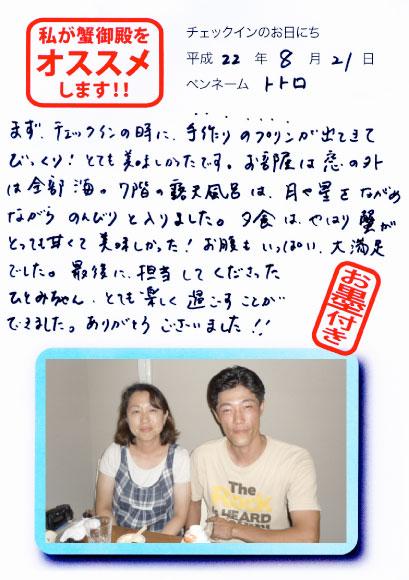 私が蟹御殿を
オススメ
します!!
チェックインのお日にち
平成 22 年 8 月 21 日
ペンネーム トトロ
まず、チェックインの時に、手作りのプリンが出てきて
びっくり！とても美味しかったです。お部屋は窓の外
は全部海。7階の露天風呂は、月や星をながめ
ながら のんびりと入りました。夕食は、やはり蟹が
とっても甘くて美味しかった！お腹もいっぱい、大満足
でした。最後に、担当してくださった
ひとみちゃん、とても楽しく過ごすことが
できました。ありがとうございました!!
お墨付き
The
Rock
HEARD